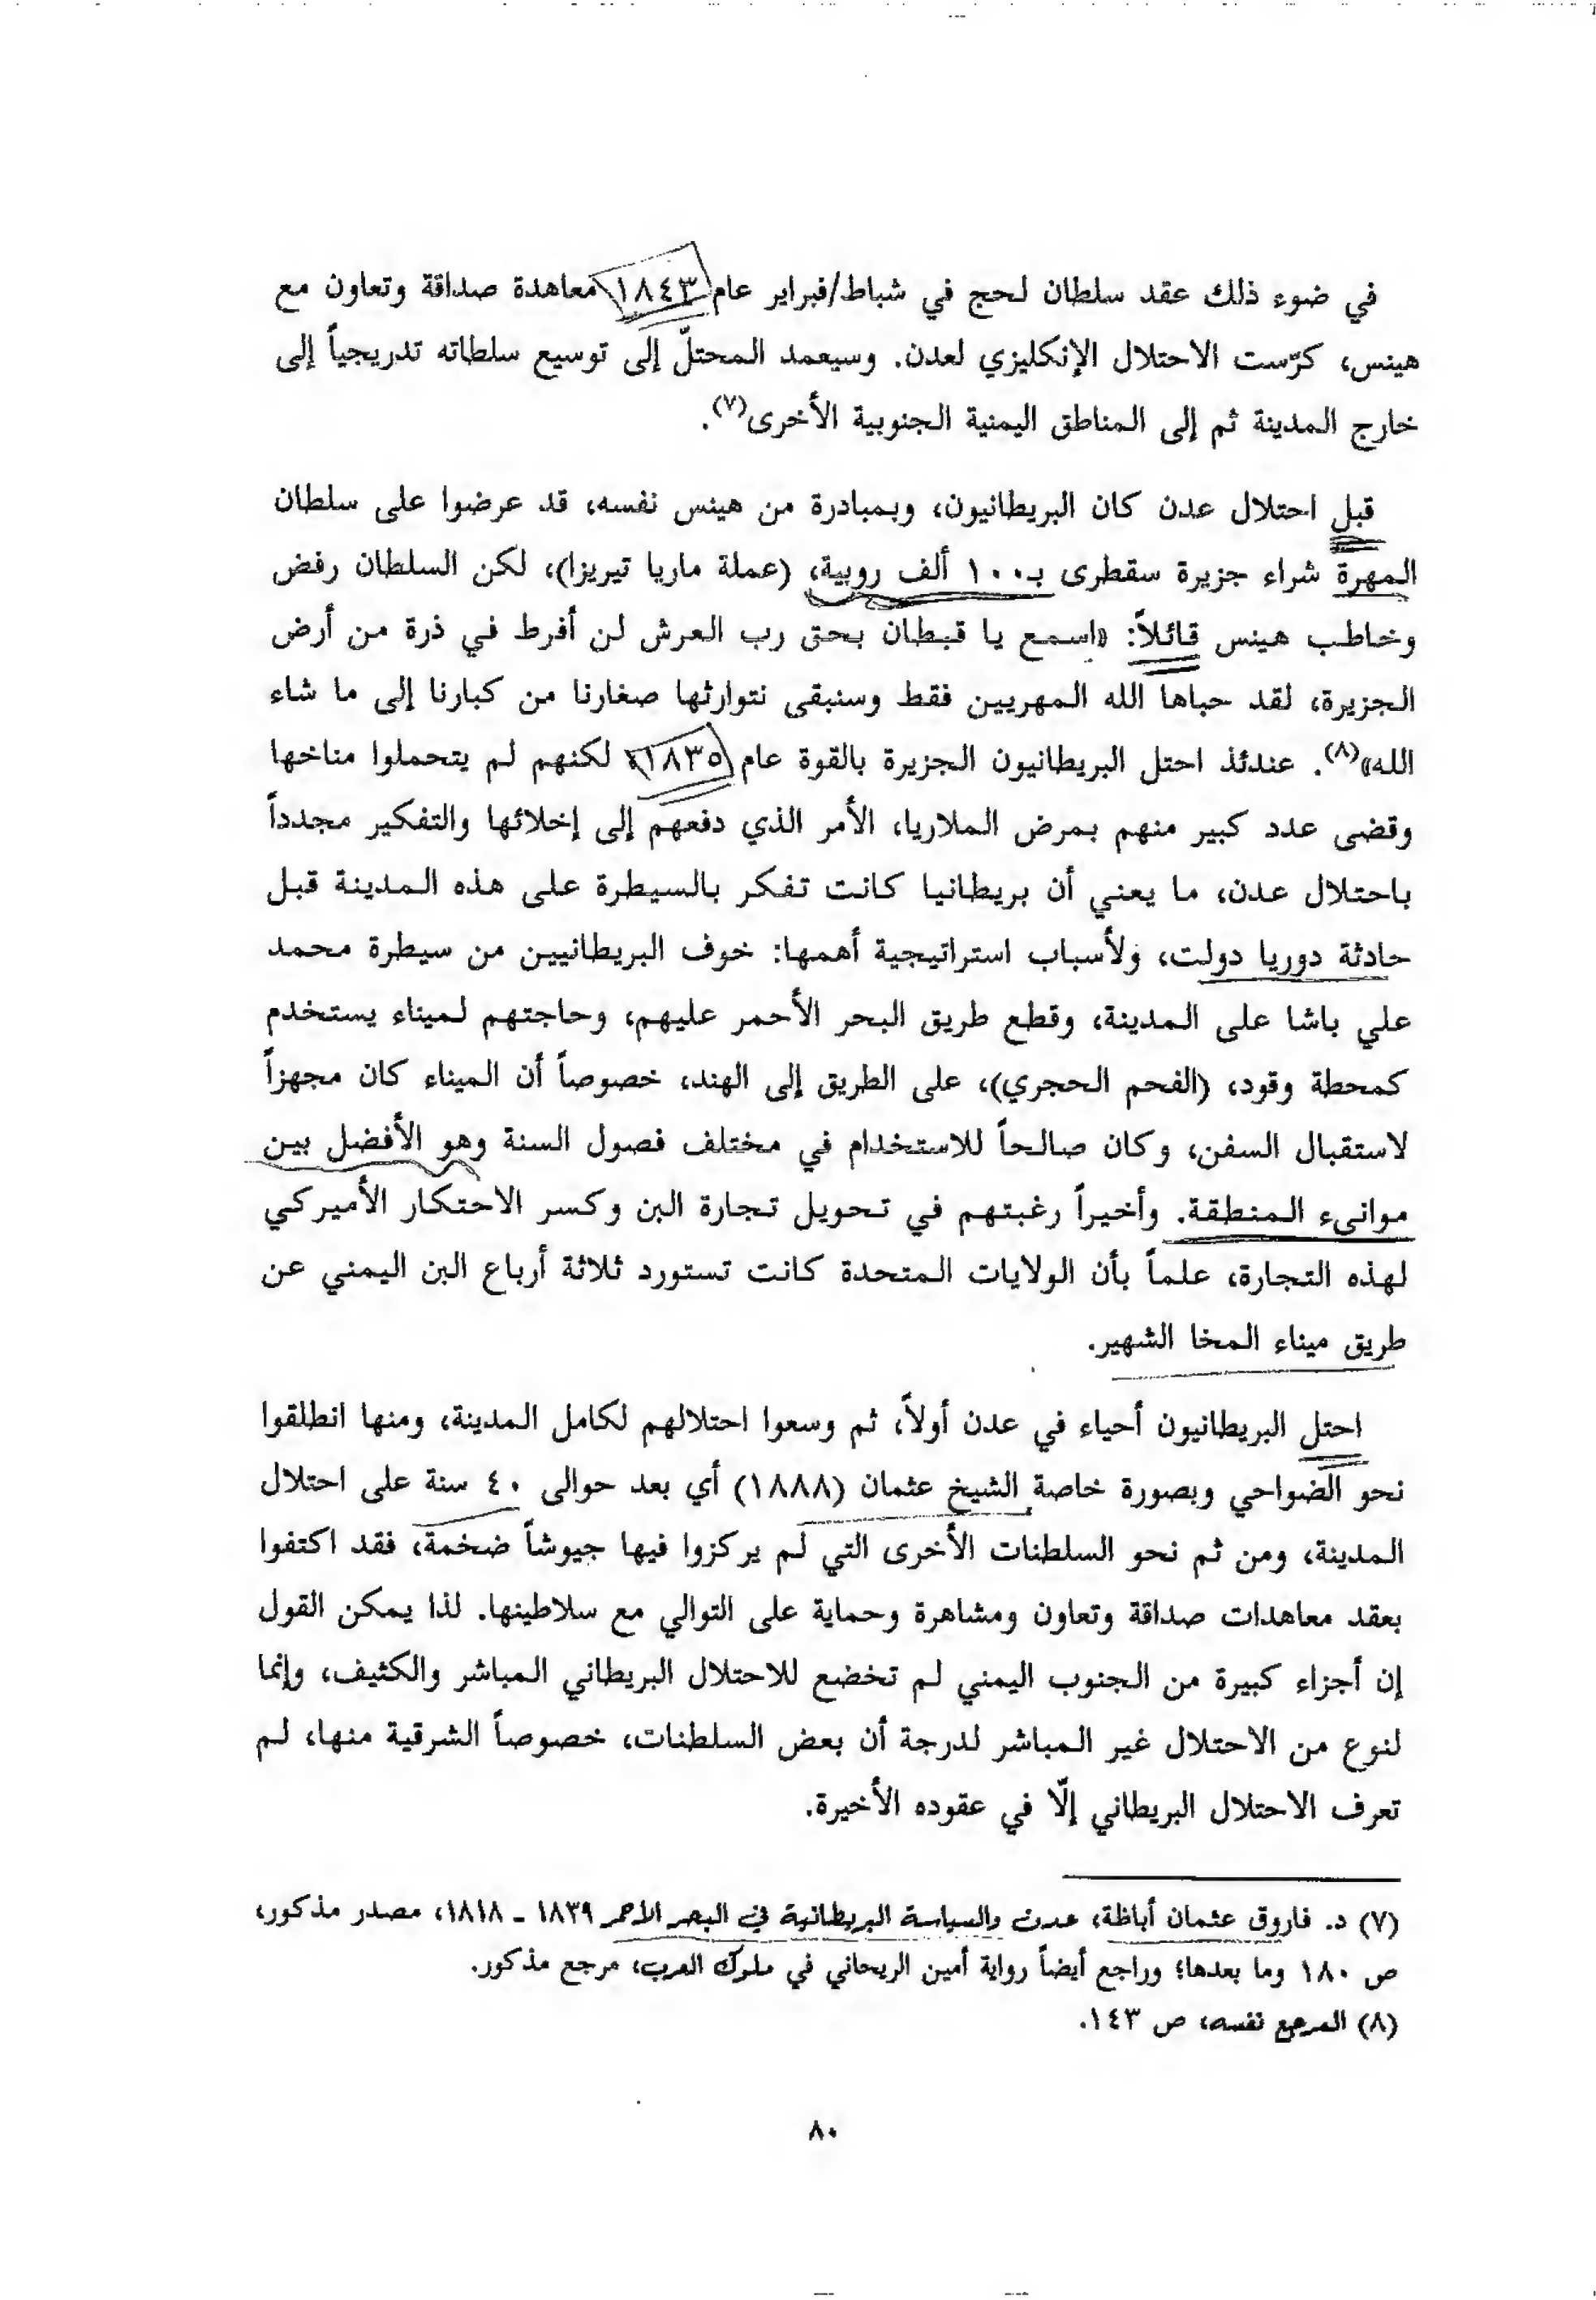 في ضوء ذلك عقد سلطان لحج في شباط/فبراير عام ١٨٤٣ معاهدة صداقة وتعاون مع
هينس، كرّست الاحتلال الإنكليزي لعدن. وسيعمد المحتلّ إلى توسيع سلطاته تدريجياً إلى
خارج المدينة ثم إلى المناطق اليمنية الجنوبية الأخرى(٧).
قبل احتلال عدن كان البريطانيون، وبمبادرة من هينس نفسه، قد عرضوا على سلطان
المهرة شراء جزيرة سقطرى بـ١٠٠ ألف روبية، (عملة ماريا تيريزا)، لكن السلطان رفض
وخاطب هينس قائلاً: «اسمع يا قبطان بحق رب العرش لن أفرط في ذرة من أرض
الجزيرة، لقد حباها الله المهريين فقط وسنبقى نتوارثها صغارنا من كبارنا إلى ما شاء
الله»(٨). عندئذ احتل البريطانيون الجزيرة بالقوة عام ١٨٣٥، لكنهم لم يتحملوا مناخها
وقضى عدد كبير منهم بمرض الملاريا، الأمر الذي دفعهم إلى إخلائها والتفكير مجدداً
باحتلال عدن، ما يعني أن بريطانيا كانت تفكر بالسيطرة على هذه المدينة قبل
حادثة دوريا دولت، ولأسباب استراتيجية أهمها: خوف البريطانيين من سيطرة محمد
علي باشا على المدينة، وقطع طريق البحر الأحمر عليهم، وحاجتهم لميناء يستخدم
كمحطة وقود، (الفحم الحجري)، على الطريق إلى الهند، خصوصاً أن الميناء كان مجهزاً
لاستقبال السفن، وكان صالحاً للاستخدام في مختلف فصول السنة وهو الأفضل بين
موانىء المنطقة. وأخيراً رغبتهم في تحويل تجارة البن وكسر الاحتكار الأميركي
لهذه التجارة، علماً بأن الولايات المتحدة كانت تستورد ثلاثة أرباع البن اليمني عن
طريق ميناء المخا الشهير.
احتل البريطانيون أحياء في عدن أولاً، ثم وسعوا احتلالهم لكامل المدينة، ومنها انطلقوا
نحو الضواحي وبصورة خاصة الشيخ عثمان (١٨٨٨) أي بعد حوالى ٤٠ سنة على احتلال
المدينة، ومن ثم نحو السلطنات الأخرى التي لم يركزوا فيها جيوشاً ضخمة، فقد اكتفوا
بعقد معاهدات صداقة وتعاون ومشاهرة وحماية على التوالي مع سلاطينها. لذا يمكن القول
إن أجزاء كبيرة من الجنوب اليمني لم تخضع للاحتلال البريطاني المباشر والكثيف، وإنما
لنوع من الاحتلال غير المباشر لدرجة أن بعض السلطنات، خصوصاً الشرقية منها، لم
تعرف الاحتلال البريطاني إلّا في عقوده الأخيرة.
(٧) د. فاروق عثمان أباظة، عدن والسياسة البريطانية في البحر الأحمر ١٨٣٩ ـ ١٨١٨، مصدر مذكور،
ص ١٨٠ وما بعدها؛ وراجع أيضاً رواية أمين الريحاني في ملوك العرب، مرجع مذكور.
(٨) المرجع نفسه، ص ١٤٣.
٨٠